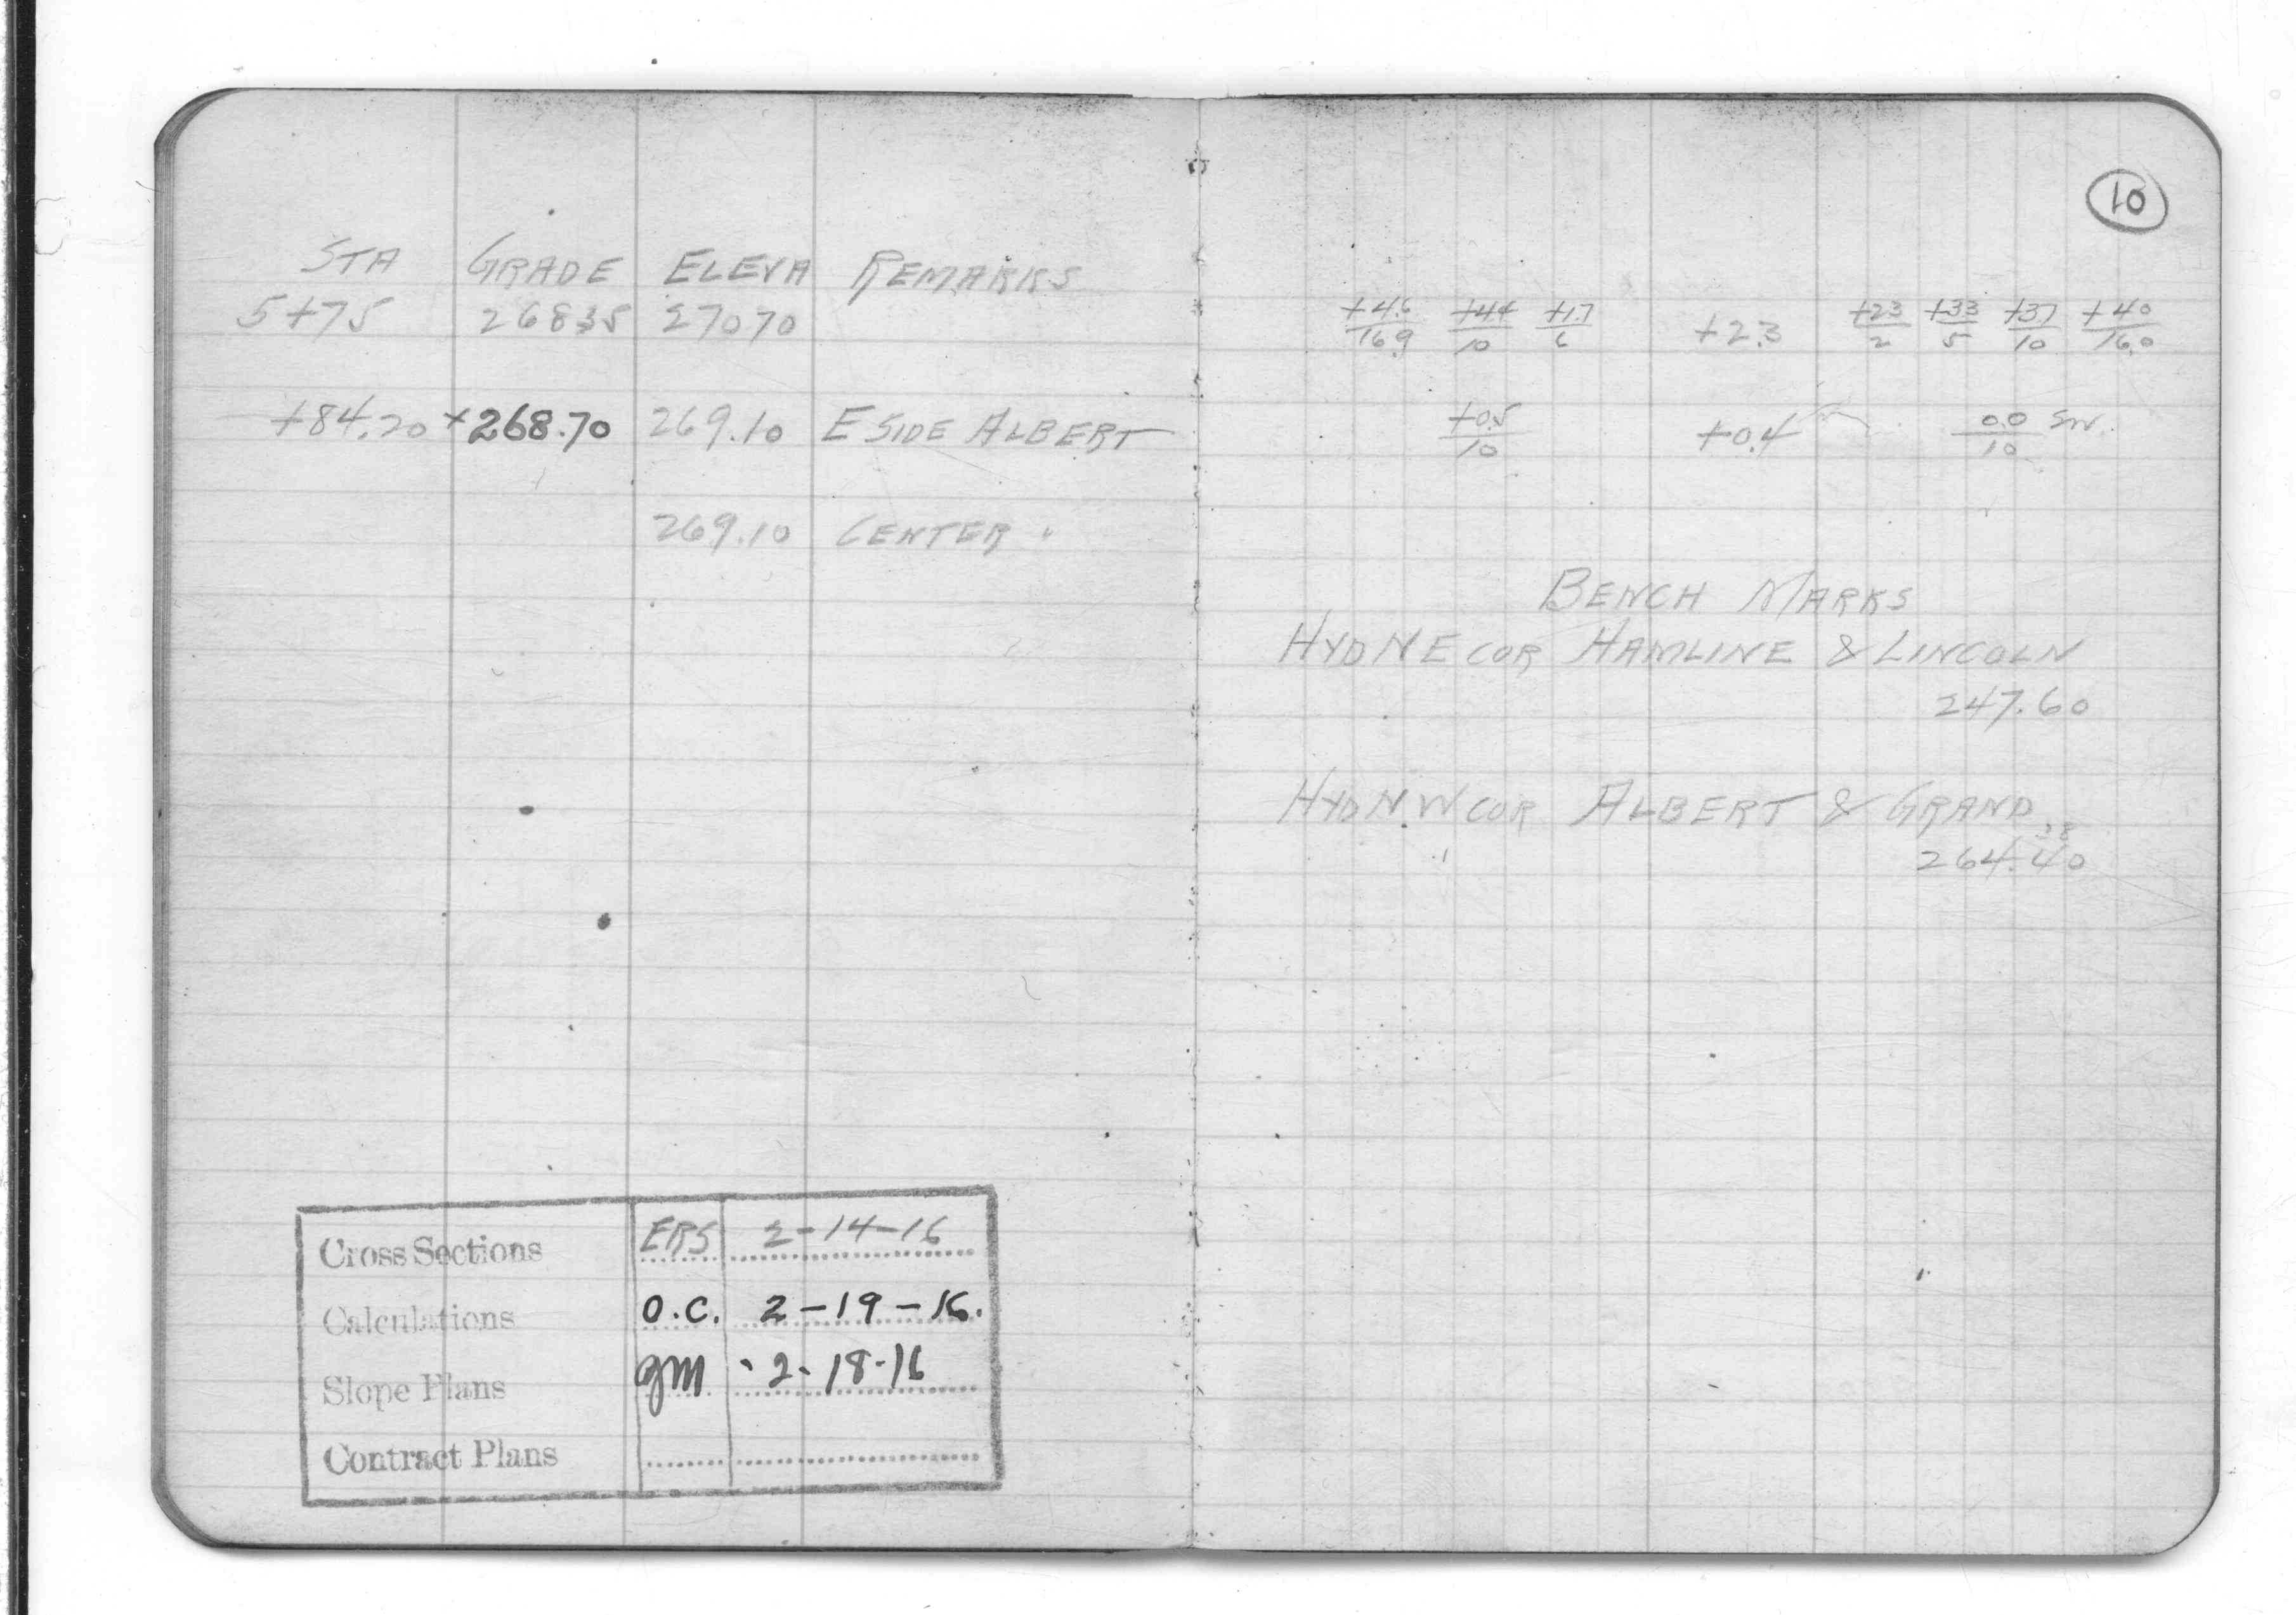 STA GRADE ELEVA REMARKS
5+75 26835 27070
+84.20 x268.70 269.10 E SIDE ALBERT
269.10 CENTER "
Cross Sections ERS 2-14-16
Calculations O.C. 2-19-16.
Slope Plans gm 2-18-16
Contract Plans
10
+4.6/16.9 +44/10 +1.7/6 +2.3 +23/2 +33/5 +37/10 +40/16.0
+0.5/10 +0.4 0.0/10 SW.
BENCH MARKS
HYD NE COR HAMLINE & LINCOLN
247.60
HYD N.W COR ALBERT & GRAND
38
264.40